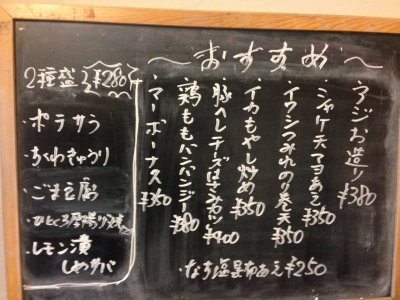 〜おすすめ〜
・アジお造り ¥380
・シャケ天マヨあえ ¥350
・イワシつみれのり巻天 ¥350
・イカもやし炒め ¥350
・豚ヘレチーズはさみカツ ¥400
・鶏ももバンバンジー ¥380
・マーボーナス ¥350
・なす塩昆布あえ ¥250
2種盛 ¥280
・ポテサラ
・ちくわきゅうり
・ごま豆腐
・レモン漬
しめサバ